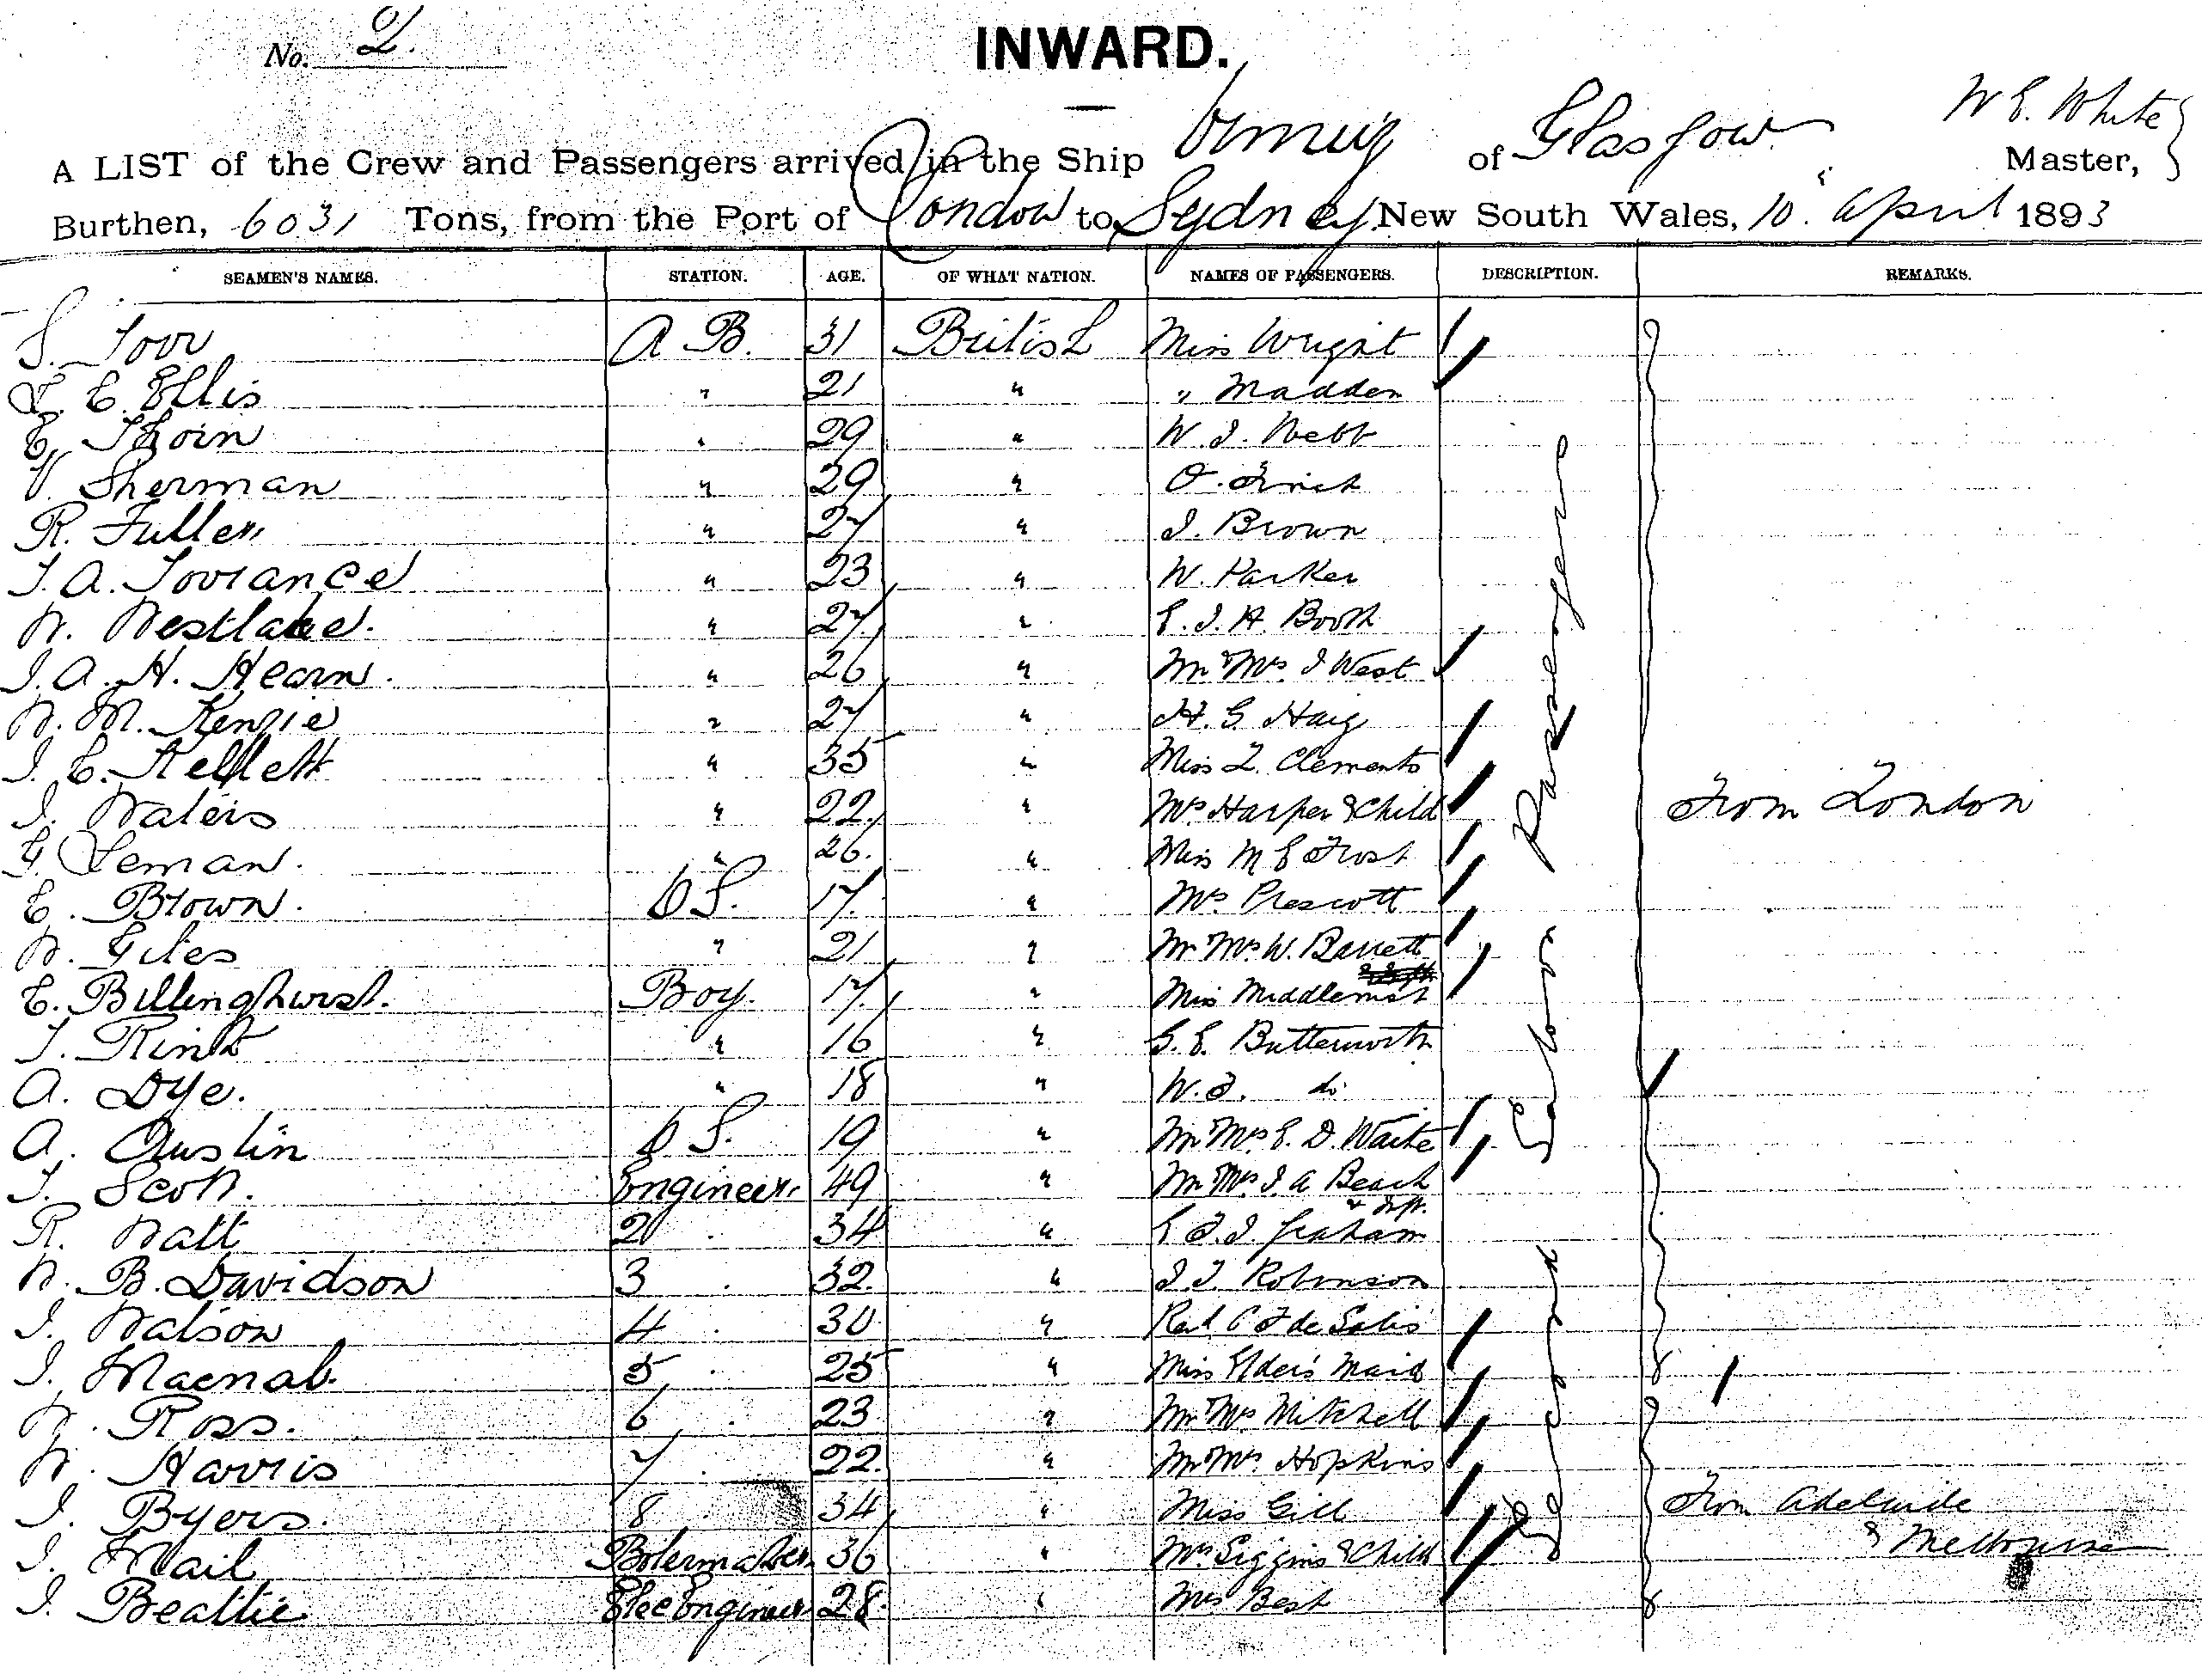 No. 2.
INWARD.
W E. White
A LIST of the Crew and Passengers arrived in the Ship Ormuz of Glasgow Master,
Burthen, 6031 Tons, from the Port of London to Sydney, New South Wales, 10 April 1893
SEAMEN'S NAMES. STATION. AGE. OF WHAT NATION. NAMES OF PASSENGERS. DESCRIPTION. REMARKS.
A B. 31 British Miss Wright
E. Ellis " 21 " " Madden
E. Thoin " 29 " W. J. Webb
V. Sherman " 29 " O.
R. Fuller " 27 " J. Brown
J. A. Torrance " 23 " W. Parker
W. Westlake. " 27 " E. J. H. Booth
J. A. H. Hearn. " 26 " Mr & Mrs J West
W. M. Kenzie " 27 " H. G. Haig
J. E. Kellett " 35 " Miss L. Clements
J. Waters " 22 " Mrs Harper & Child From London
G. Leman. " 26. " Miss M E Frost
E. Brown. O S. 17. " Mrs Prescott
W. Giles " 21 " Mr & Mrs W. Barrett
E. Billinghurst. Boy. 17. " Miss Middlemist
T. " 16 " G. E. Butterworth
A. Dye. " 18 " W. J. do.
A. Austin O S. 19 " Mr & Mrs E. D. Waite
T. Scott. Engineer 49 " Mr & Mrs J. A Beach
& Inft.
R. Watt 2 34 " E. J. J. Graham
W. B. Davidson 3 32. " J. J. Robinson
J. Watson 4 30 " C F de Salis
J. Macnab. 5 25 " Miss Elder's Maid
W. Ross. 6 23 " Mr & Mrs Mitchell
W. Harris 7 22. " Mr & Mrs Hopkins
J. Byers. 8 34 " Miss Gill From Adelaide
J. Mail Boilermaker 36 " Mrs Siggins & Child & Melbourne
J. Beattie Elec Engineer 28. " Mrs Best
Second Saloon Passengers